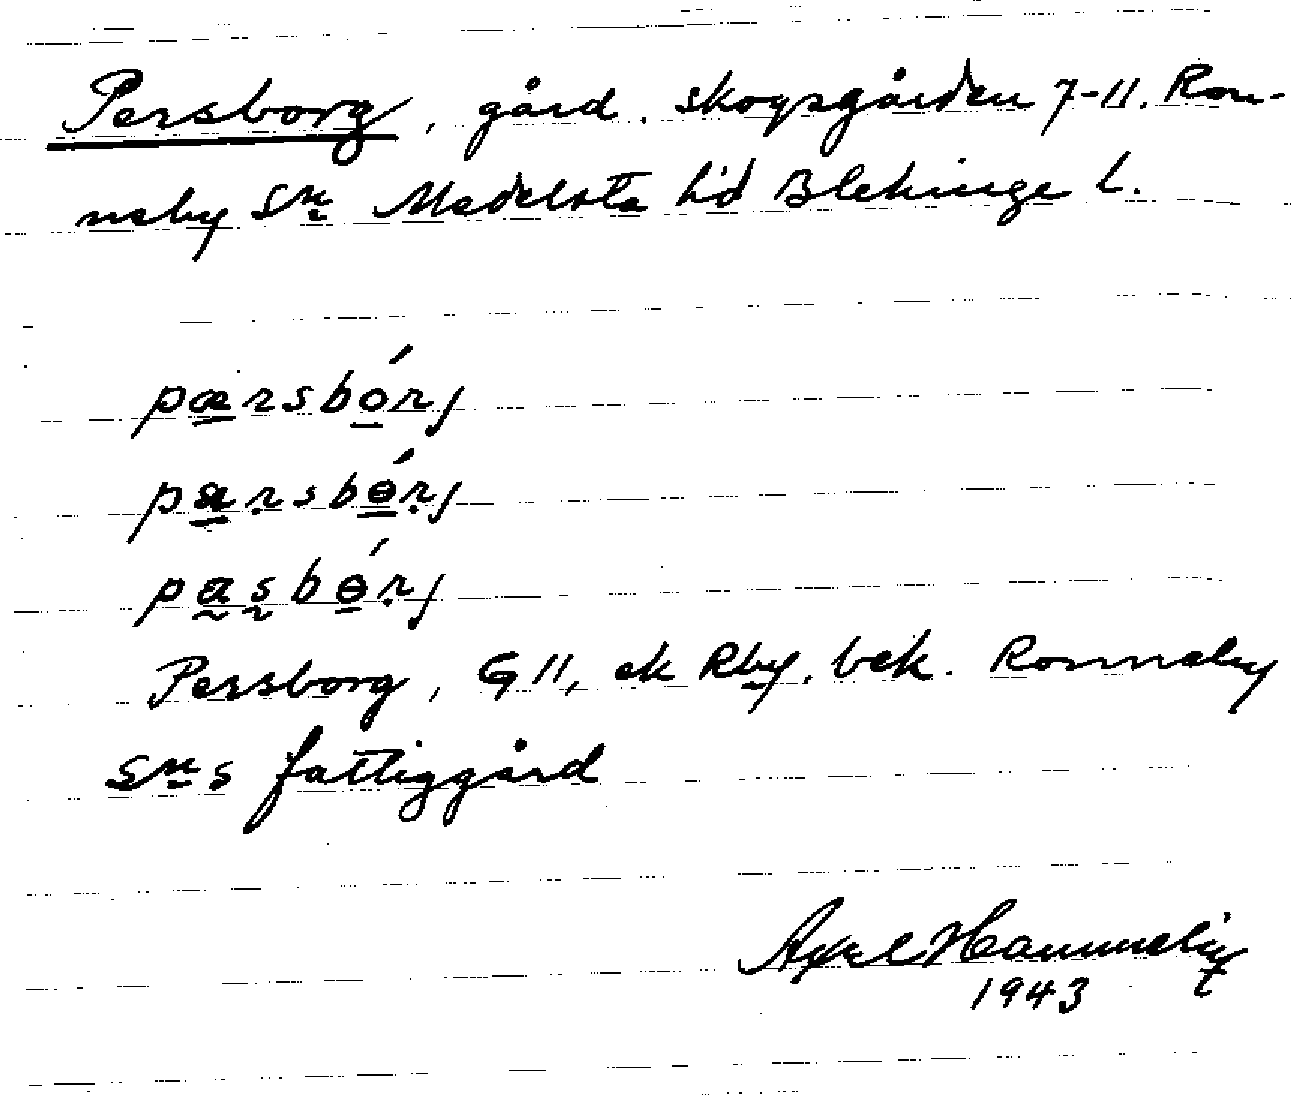 Persborg, gård. Skogsgården 7-11. Ron-
neby Sn Medelsta h:d Blekinge l.
pærsbórj
pærsbɵ́rj
pasbɵ́rj
Persborg, G 11, ek Rby, bek. Ronneby
Sns fattiggård
Axel
1943